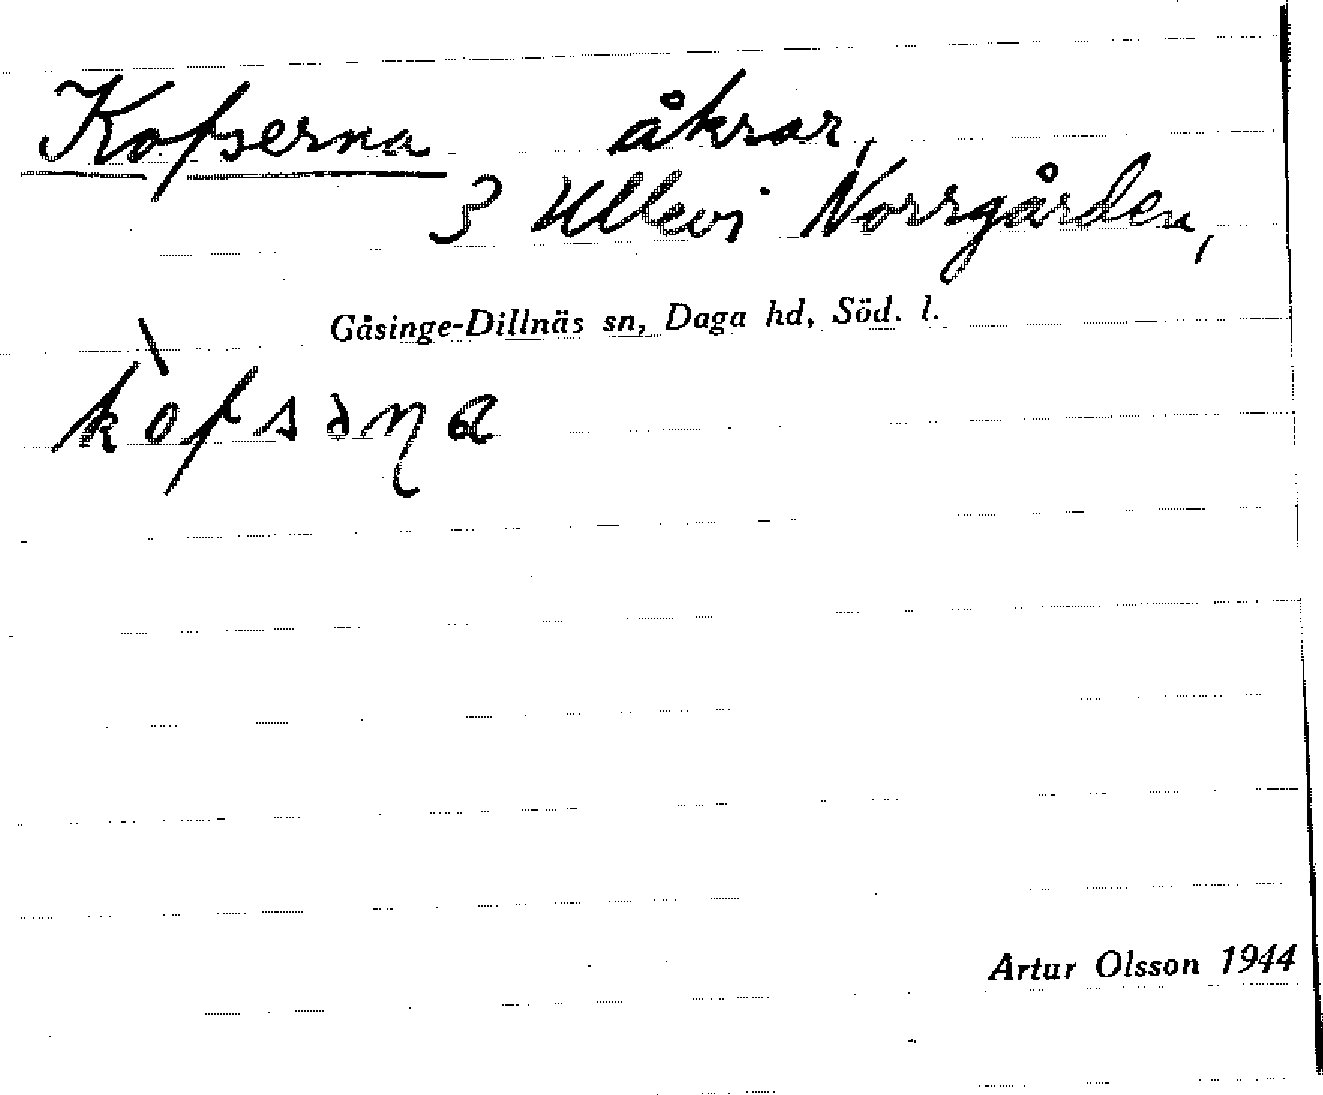 Kopserna åkrar,
3 Ullevi Norrgården,
Gåsinge-Dillnäs sn, Daga hd, Söd. l.
kòpsəɳa
Artur Olsson 1944